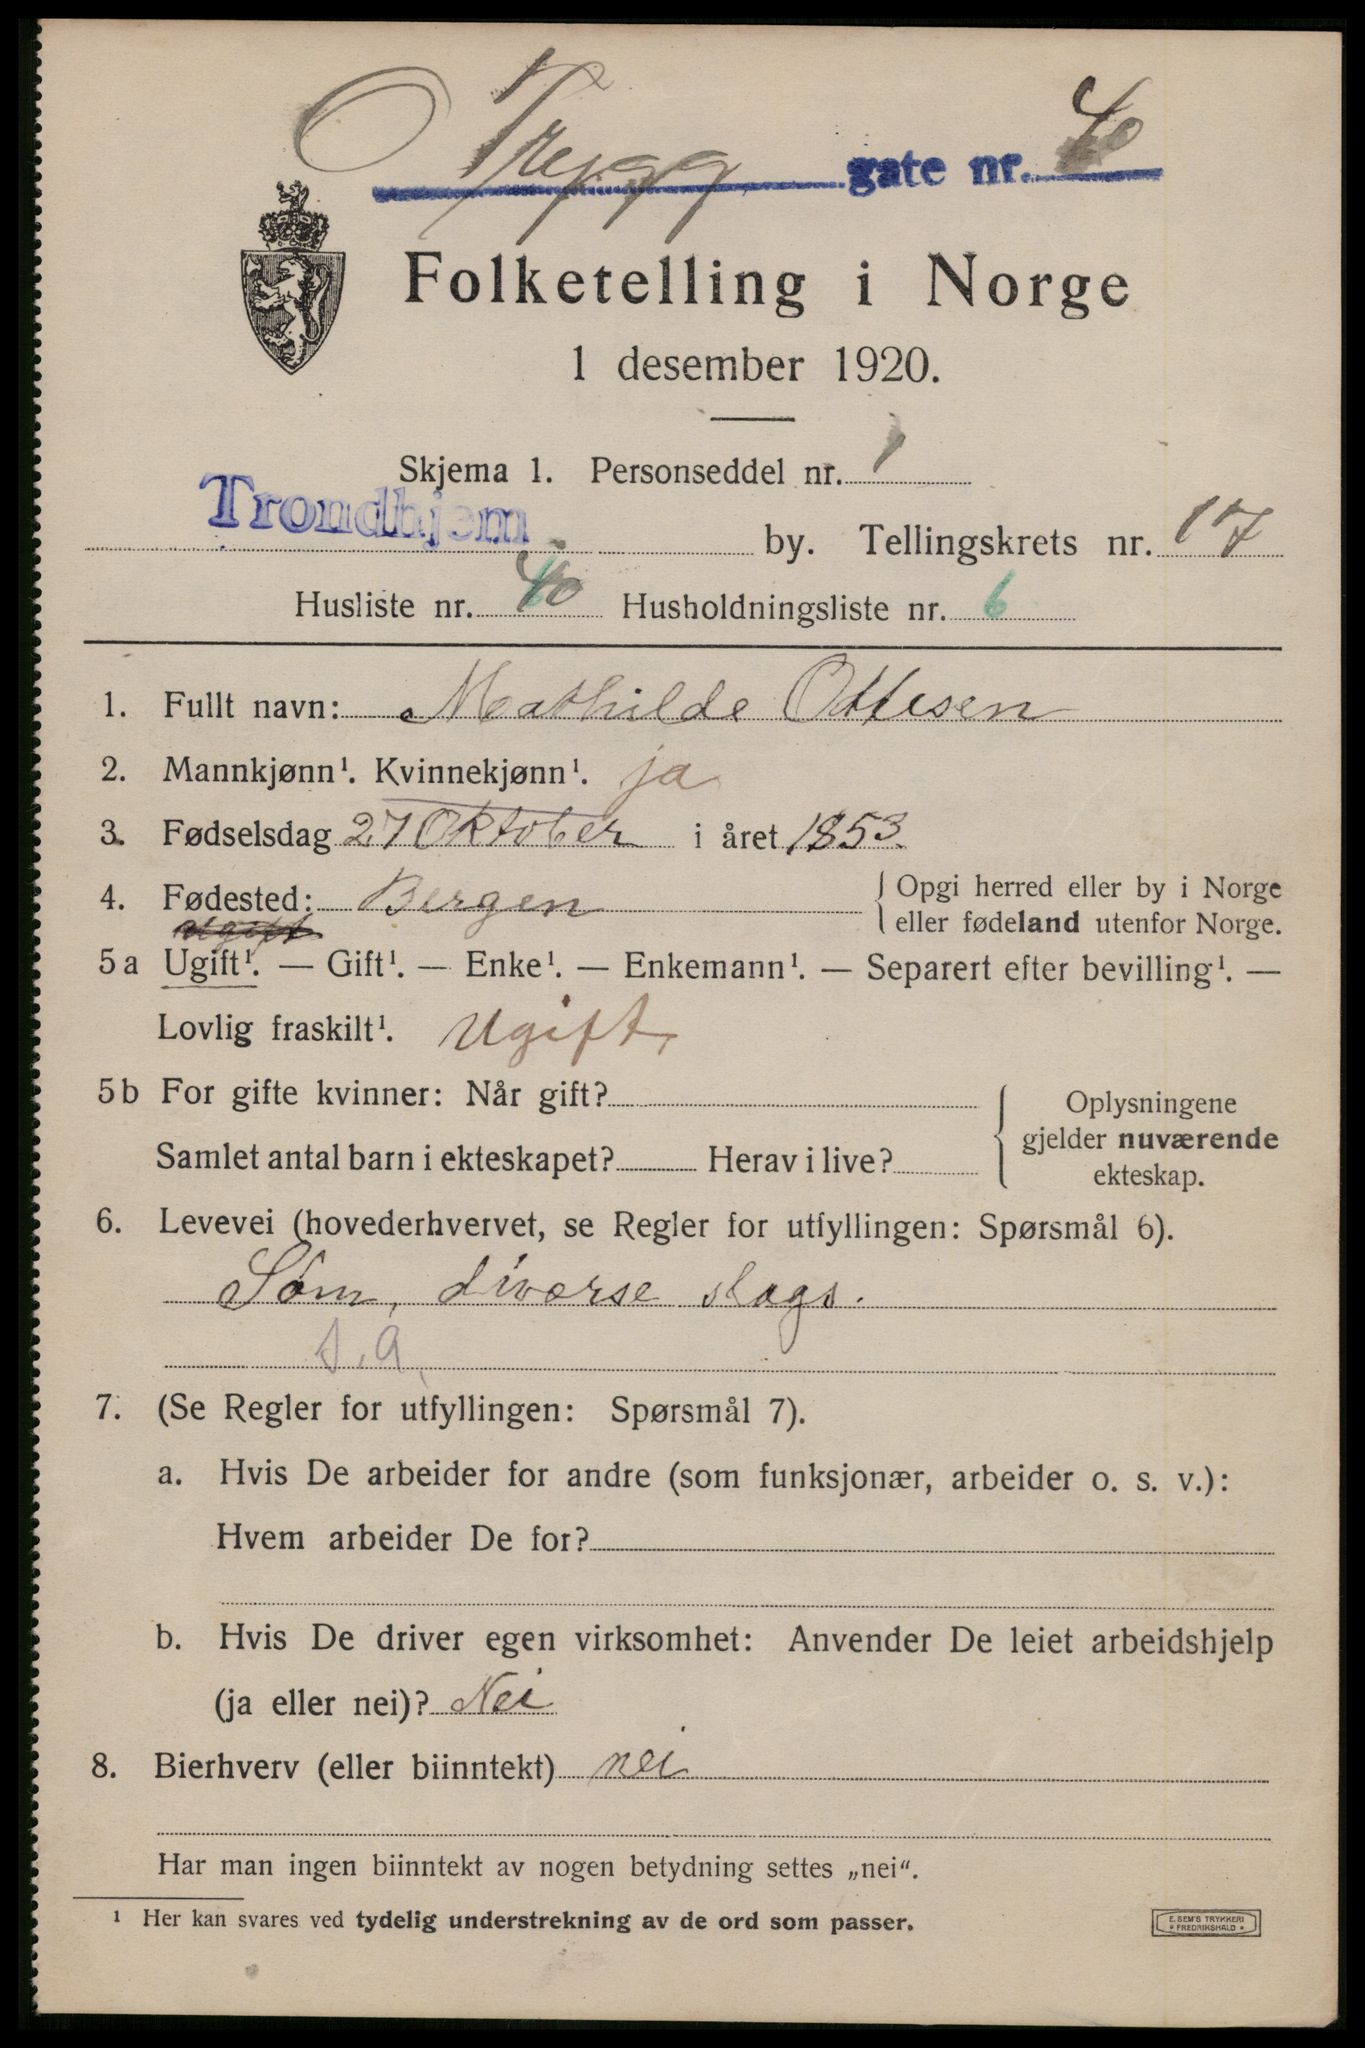 Trygg gate nr. 40
Folketelling i Norge
1 desember 1920.
Skjema 1. Personseddel nr. 1
Trondhjem by. Tellingskrets nr. 17
Husliste nr. 40 Husholdningsliste nr. 6
1. Fullt navn: Mathilde Ottesen
2. Mannkjønn¹. Kvinnekjønn¹. ja
3. Fødselsdag 27 Oktober i året 1853.
4. Fødested: Bergen { Opgi herred eller by i Norge
eller fødeland utenfor Norge.
Ugift
5 a Ugift¹. — Gift¹. — Enke¹. — Enkemann¹. — Separert efter bevilling¹. —
Lovlig fraskilt¹. Ugift,
5 b For gifte kvinner: Når gift?
Samlet antal barn i ekteskapet? Herav i live?
Oplysningene
gjelder nuværende
ekteskap.
6. Levevei (hovederhvervet, se Regler for utfyllingen: Spørsmål 6).
Søm, diverse slags.
s.a.
7. (Se Regler for utfyllingen: Spørsmål 7).
a. Hvis De arbeider for andre (som funksjonær, arbeider o. s. v.):
Hvem arbeider De for?
b. Hvis De driver egen virksomhet: Anvender De leiet arbeidshjelp
(ja eller nei)? Nei
8. Bierhverv (eller biinntekt) nei
Har man ingen biinntekt av nogen betydning settes „nei“.
¹ Her kan svares ved tydelig understrekning av de ord som passer.
E. SEM'S TRYKKERI
* FREDRIKSHALD *